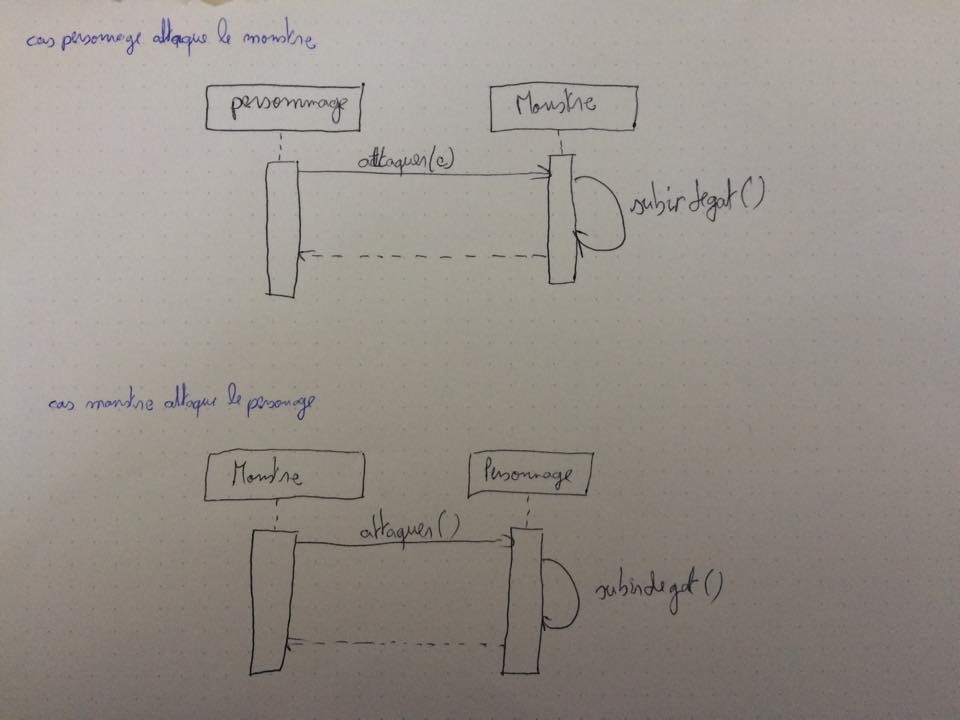 cas personnage attaque le monstre
personnage
Monstre
attaquer(c)
subirdegat()
cas monstre attaque le personage
Monstre
Personnage
attaquer()
subirdegat()